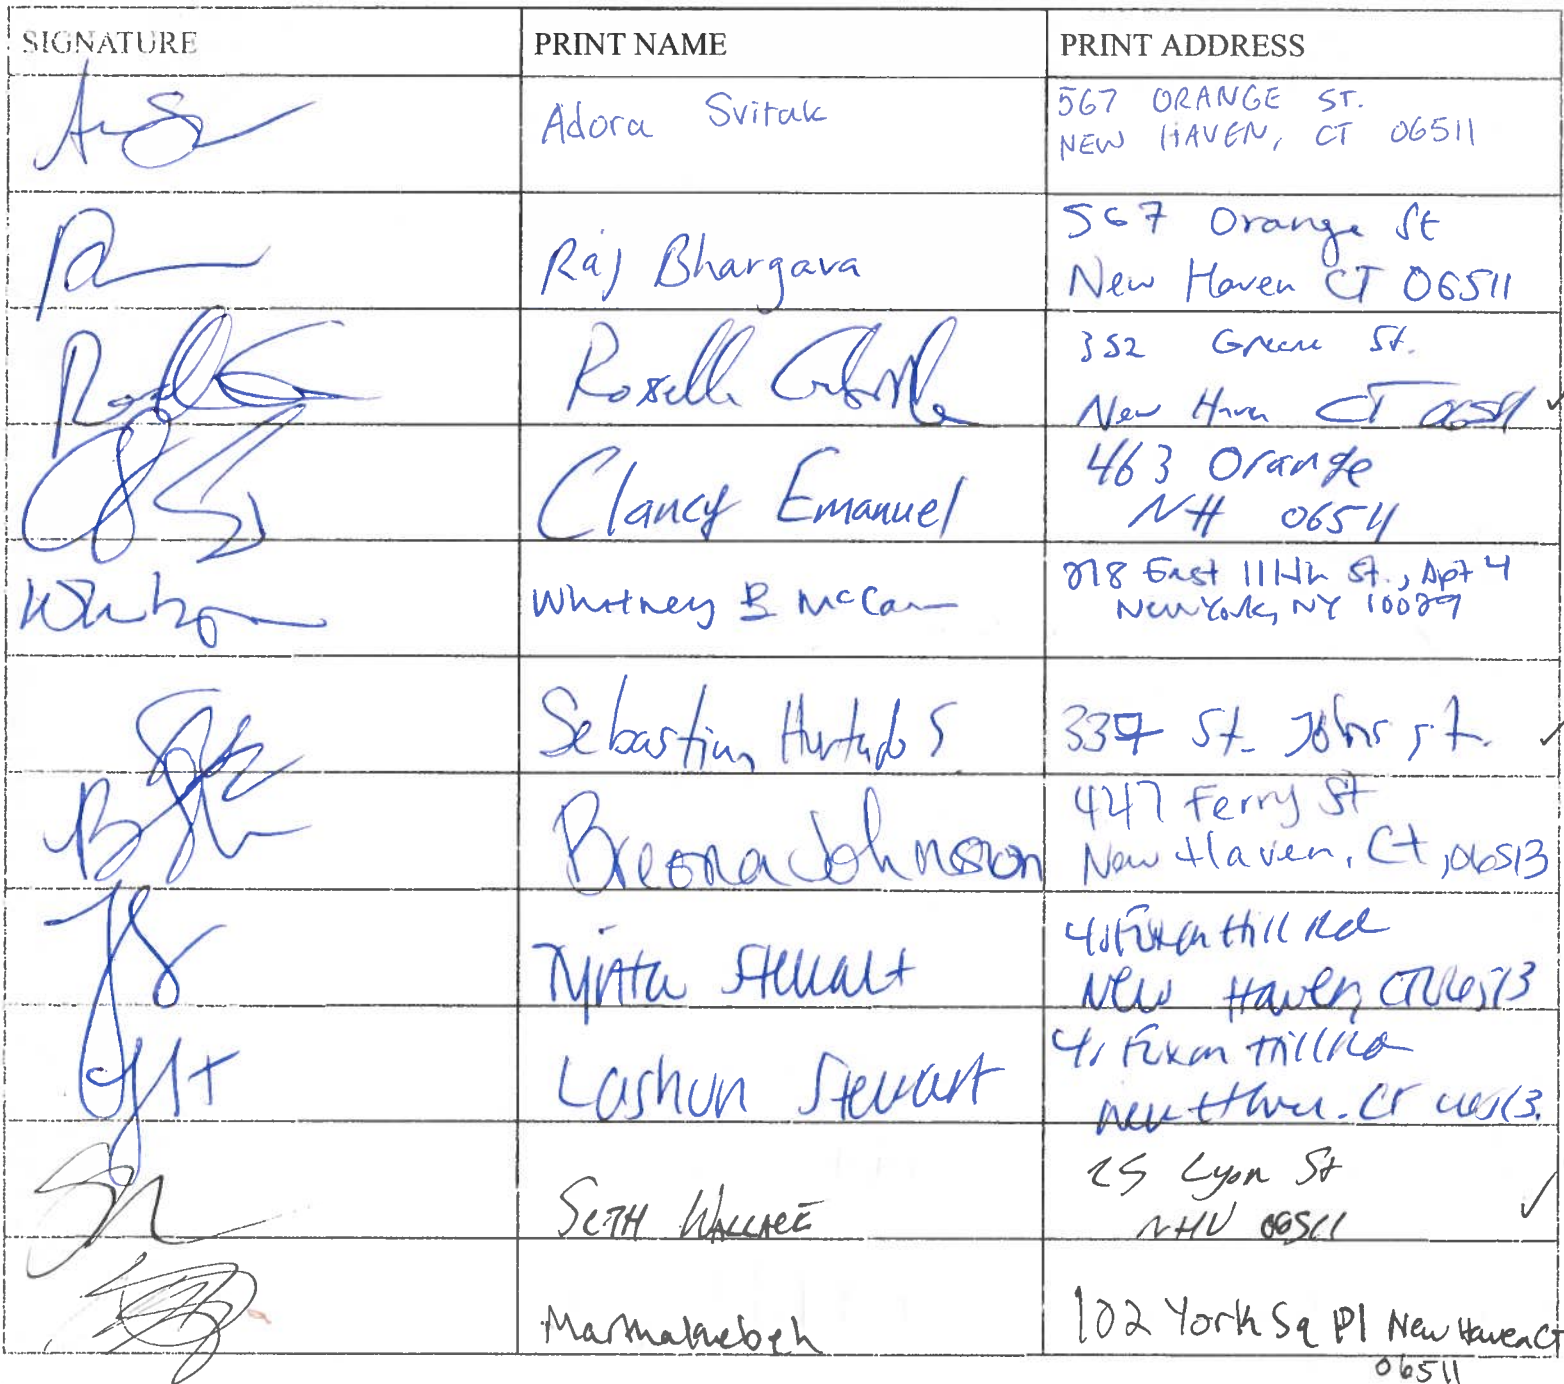 SIGNATURE PRINT NAME PRINT ADDRESS
Adora Svitak 567 ORANGE ST.
NEW HAVEN, CT 06511
Raj Bhargava 567 Orange St
New Haven CT 06511
Roselle 352 Greene St.
New Haven CT 06511
Clancy Emanuel 463 Orange
NH 06511
Whitney B McCann 218 East 111th St., Apt 4
New York, NY 10029
Sebastian Hurtado S 337 St. Johns st.
Breona Johnson 447 Ferry St
New Haven, Ct, 06513
Stewart 41 Fuxon Hill Rd
New Haven, CT 06513
Lashun Stewart 41 Fuxon Hill Rd
New Haven. CT 06513.
SETH WALLACE 25 Lyon St
NHV 06511
102 York Sq Pl New Haven CT
06511